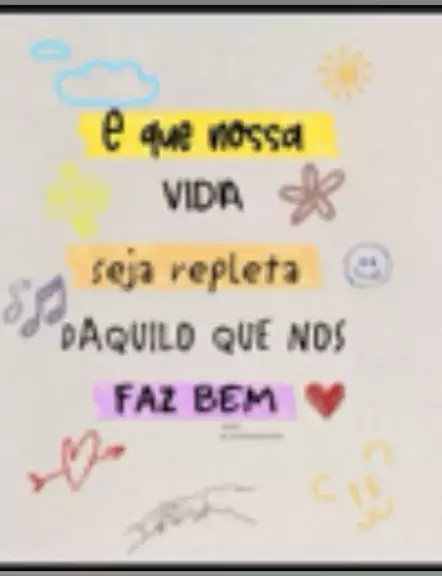 e que nossa
VIDA
seja repleta
DAQUILO QUE NOS
FAZ BEM